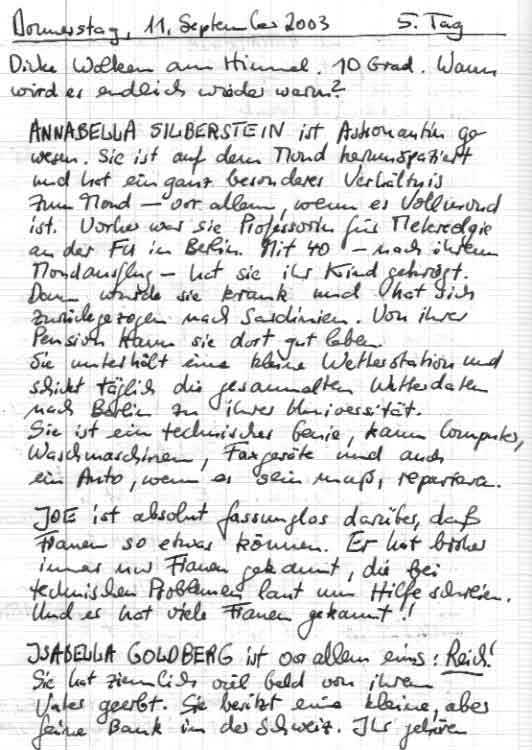 Donnerstag, 11. September 2003 5. Tag
Dicke Wolken am Himmel. 10 Grad. Wann
wird es endlich wieder warm?
ANNABELLA SILBERSTEIN ist Astronautin ge
wesen. Sie ist auf dem Mond herumspaziert
und hat ein ganz besonderes Verhältnis
zum Mond – vor allem, wenn es Vollmond
ist. Vorher war sie Professorin für Meteorologie
an der FU in Berlin. Mit 40 – nach ihrem
Mondausflug – hat sie ihr Kind gekriegt.
Dann wurde sie krank und hat sich
zurückgezogen nach Sardinien. Von ihrer
Pension kann sie dort gut leben
Sie unterhält eine kleine Wetterstation und
schickt täglich die gesammelten Wetterdaten
nach Berlin zu ihrer Universität.
Sie ist ein technisches Genie, kann Computer,
Waschmaschinen, Faxgeräte und auch
ein Auto, wenn es sein muß, reparieren.
JOE ist absolut fassunglos darüber, daß
Frauen so etwas können. Er hat bisher
immer nur Frauen gekannt, die bei
technischen Problemen laut um Hilfe schreien.
Und er hat viele Frauen gekannt!!
ISABELLA GOLDBERG ist vor allem eins: Reich!
Sie hat ziemlich viel Geld von ihrem
Vater geerbt. Sie besitzt eine kleine, aber
feine Bank in der Schweiz. Ihr gehören